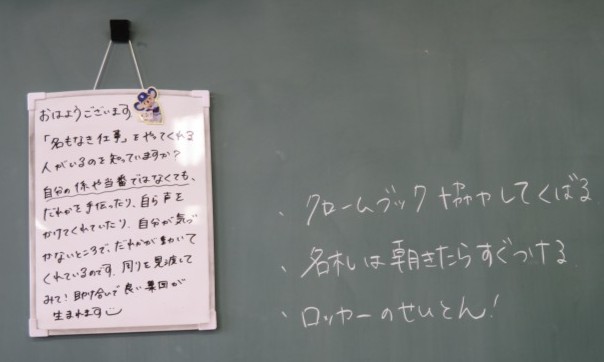 おはようございます
「名もなき仕事」をやってくれる
人がいるのを知っていますか?
自分の係や当番ではなくても、
だれかを手伝ったり、自ら声を
かけてくれていたり、自分が気づ
かないところで、だれかが動いて
くれているのです。周りを見渡して
みて!助け合いで良い集団が
生まれます
、クロームブック してくばる
、名札は朝きたらすぐつける
、ロッカーのせいとん!